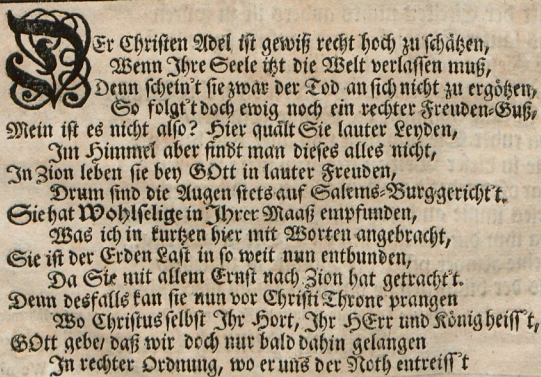 DEr Christen Adel ist gewiß recht hoch zu schätzen,
Wenn Ihre Seele itzt die Welt verlassen muß,
Denn schein't sie zwar der Tod an sich nicht zu ergötzen,
So folgt't doch ewig noch ein rechter Freuden-Guß,
Mein ist es nicht also? Hier quält Sie lauter Leyden,
Im Himmel aber findt man dieses alles nicht,
In Zion leben sie bey GOtt in lauter Freuden,
Drum sind die Augen stets auf Salems-Burg gericht't.
Sie hat Wohlselige in Ihrer Maaß empfunden,
Was ich in kurtzen hier mit Worten angebracht,
Sie ist der Erden Last in so weit nun entbunden,
Da Sie mit allem Ernst nach Zion hat getracht't.
Denn desfalls kan sie nun vor Christi Throne prangen
Wo Christus selbst Ihr Hort, Ihr HErr und König heiss't,
GOtt gebe/ daß wir doch nur bald dahin gelangen
In rechter Ordnung, wo er uns der Noth entreiss't